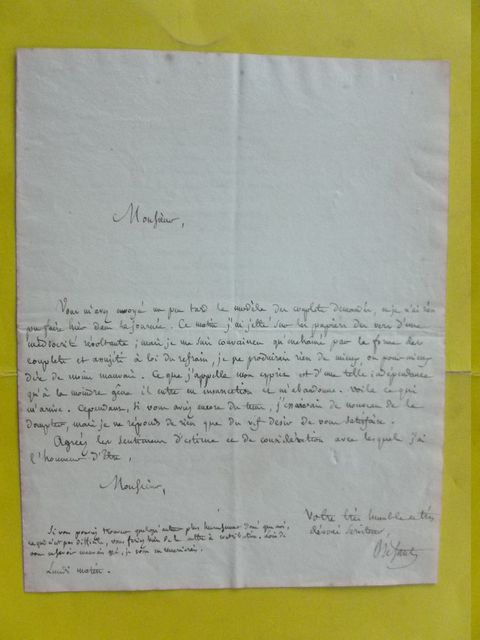 Monsieur,
Vous m'avez envoyé un peu tard le modèle des couplets demandés, et je n'ai rien
pu faire hier dans la journée. Ce matin j'ai jetté sur les papiers des vers d'une
médiocrité révoltante ; mais je me suis convaincu qu'enchainé par la forme des
couplets et assujéti à la loi du refrain, je ne produirais rien de mieux, ou pour mieux
dire de moins mauvais. Ce que j'appelle mon esprit est d'une telle indépendance
qu'à la moindre gêne il entre en insurrection et m'abandonne. Voilà ce qui
m'arrive. Cependant, si vous aviez encore du tems, j'essaierais de nouveau de le
dompter, mais je ne réponds de rien que du vif désir de vous satisfaire.
Agréez les sentimens d'estime et de considération avec lesquels j'ai
l'honneur d'être,
Monsieur,
Votre très humble et très
dévoué serviteur,
Si vous pouviez trouver quelqu'autre plus heureux que moi,
ce qui n'est pas difficile, vous feriez bien de le mettre à contribution. Loin de
vous en savoir mauvais gré, je vous en remercierais.
Lundi matin.